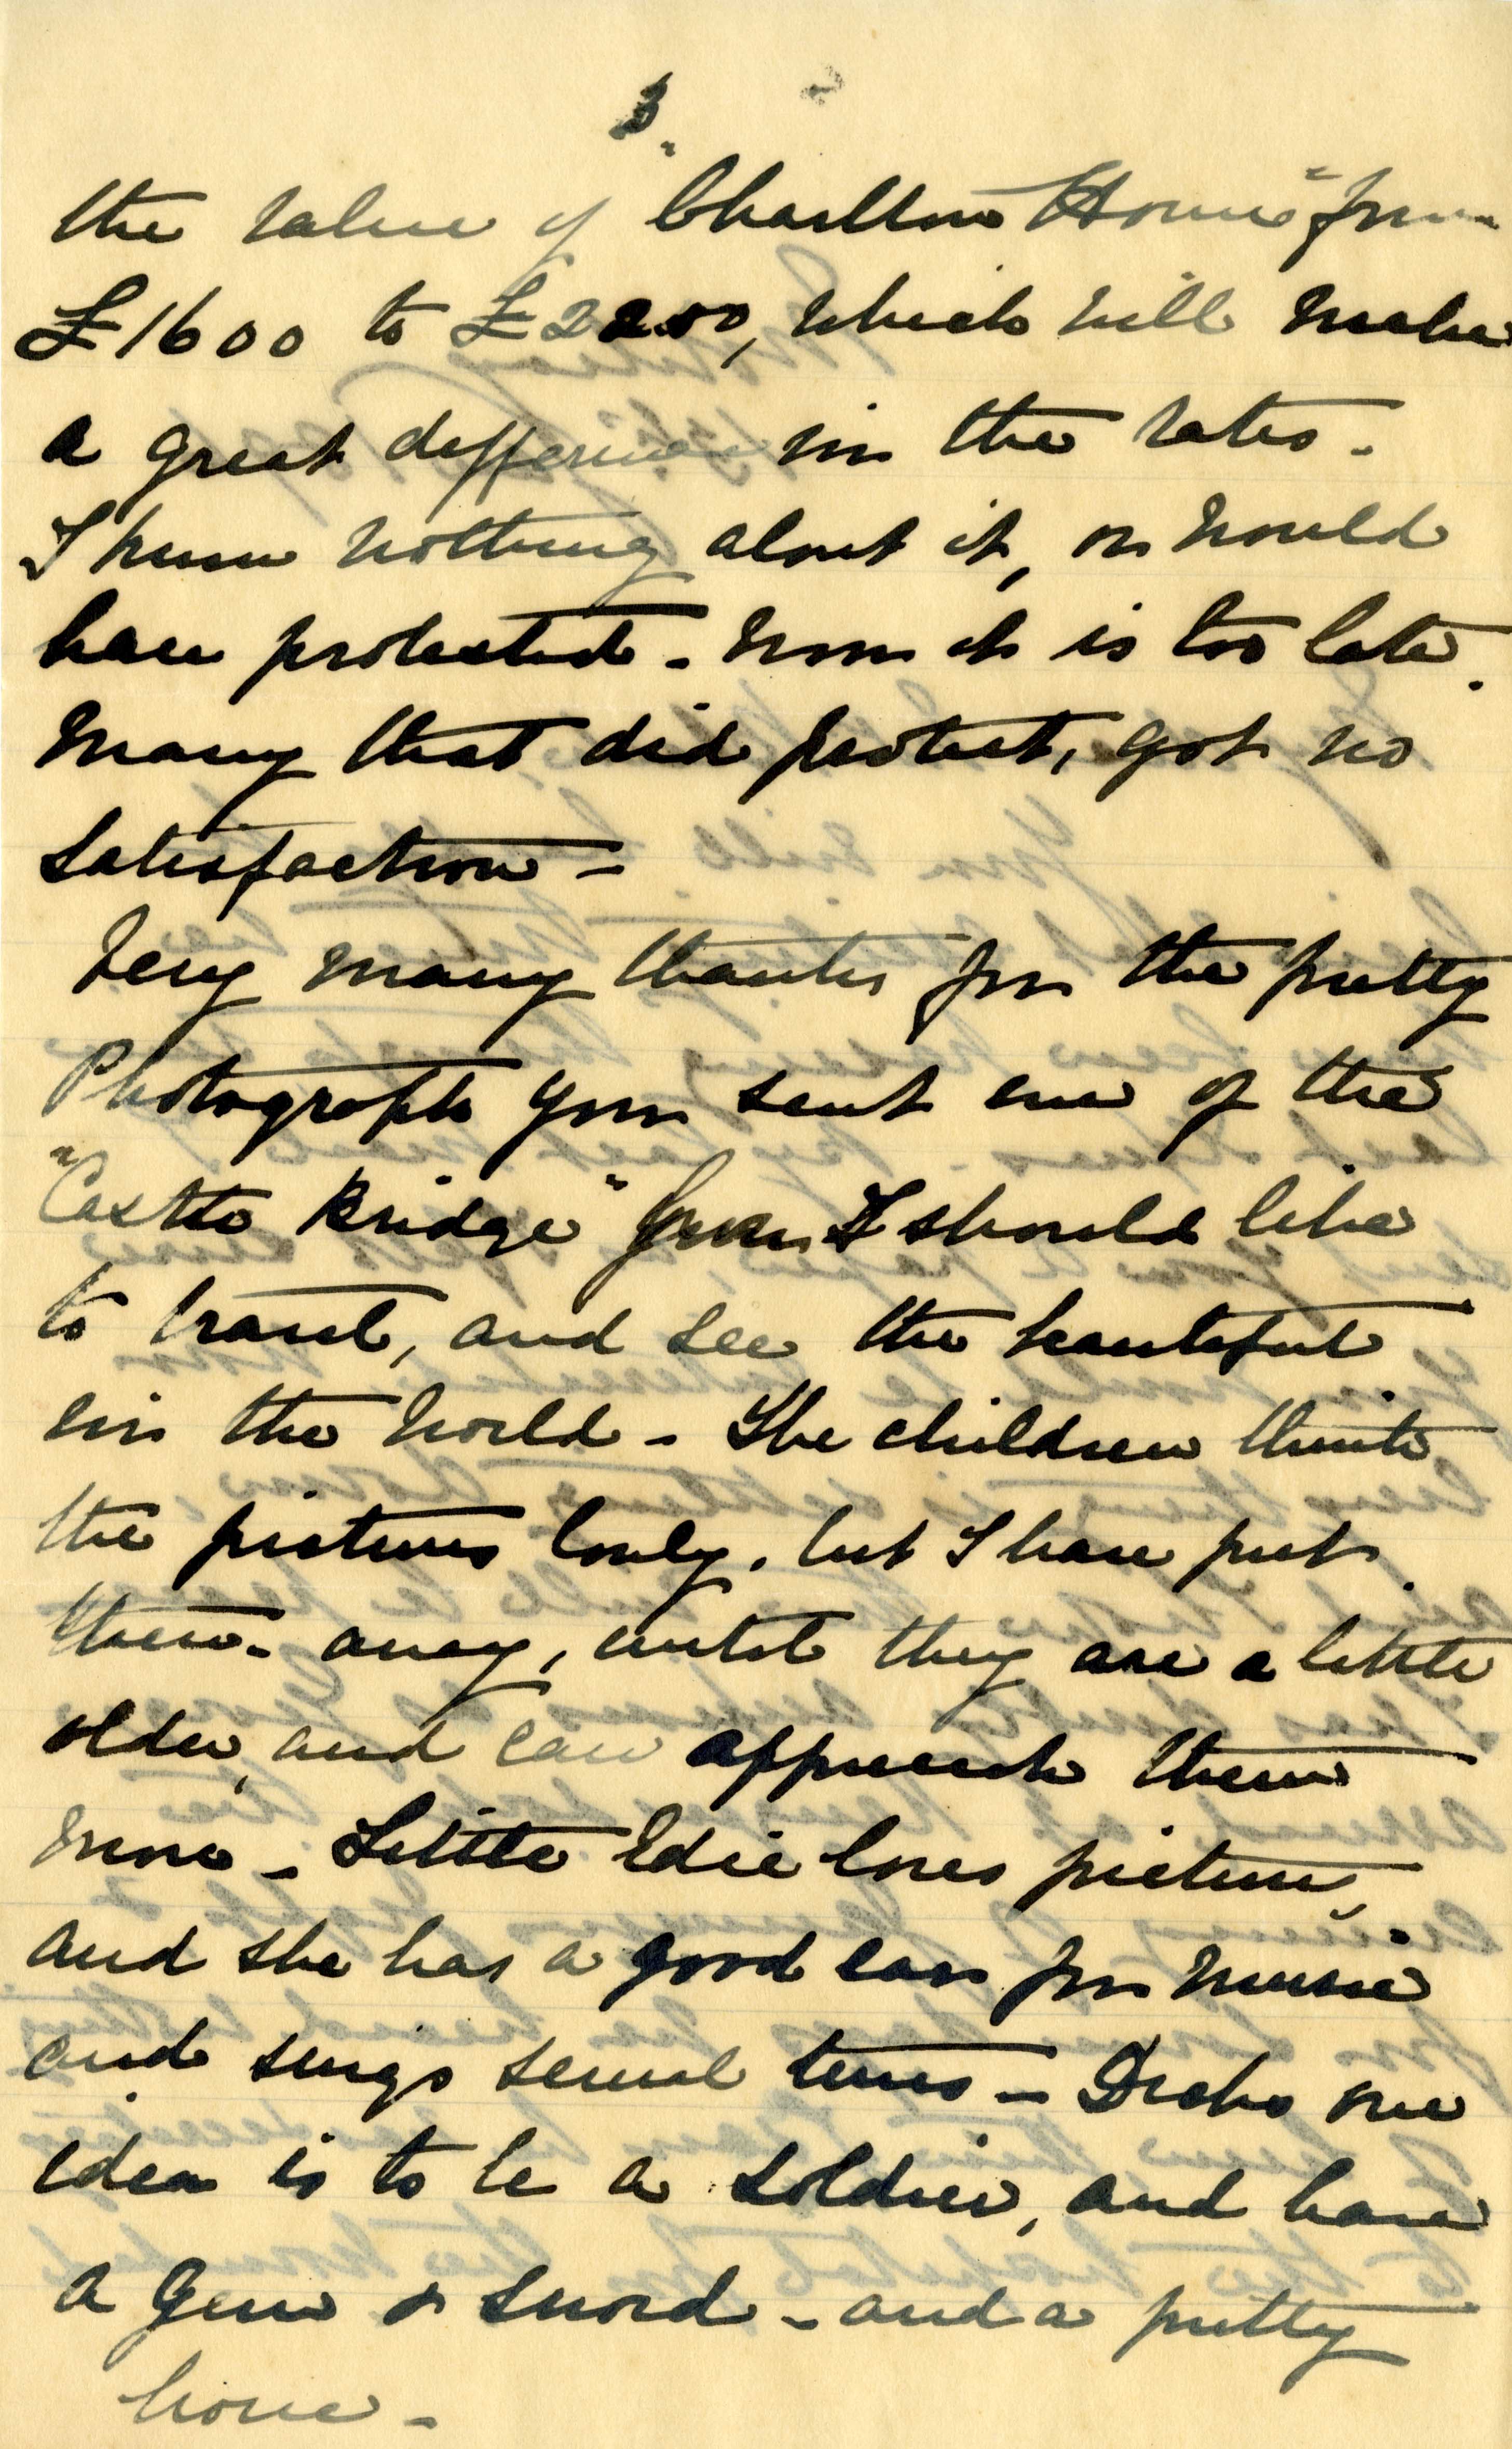 3
the value of "Charlton House" from
£1600 to £2250, which will make
a great difference in the rates -
I knew nothing about it, or would
have protested - now it is too late.
Many that did protest, got no
satisfaction -
Very many thanks for the pretty
Photograph you sent me of the
"Castle Bridge" I should like
to travel, and see the beautiful
in the world - The children think
the pictures lovely. but I have put
them away, until they are a little
older, and can appreciate them
more - Little Edie loves pictures,
and she has a good ear for music
and sings several tunes - Dicks one
idea is to be a soldier, and have
a gun & sword - and a pretty
horse -